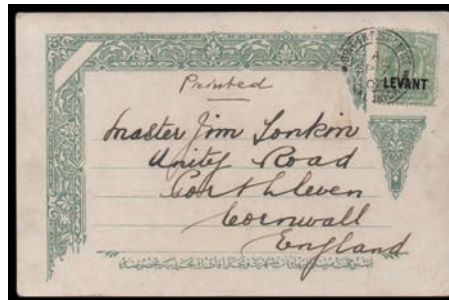 LEVANT
Printed
Master Jim Tonkin
Unity Road
Porthleven
Cornwall
England